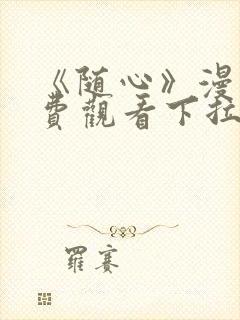 《随心》漫
費觀看下拉
羅賽